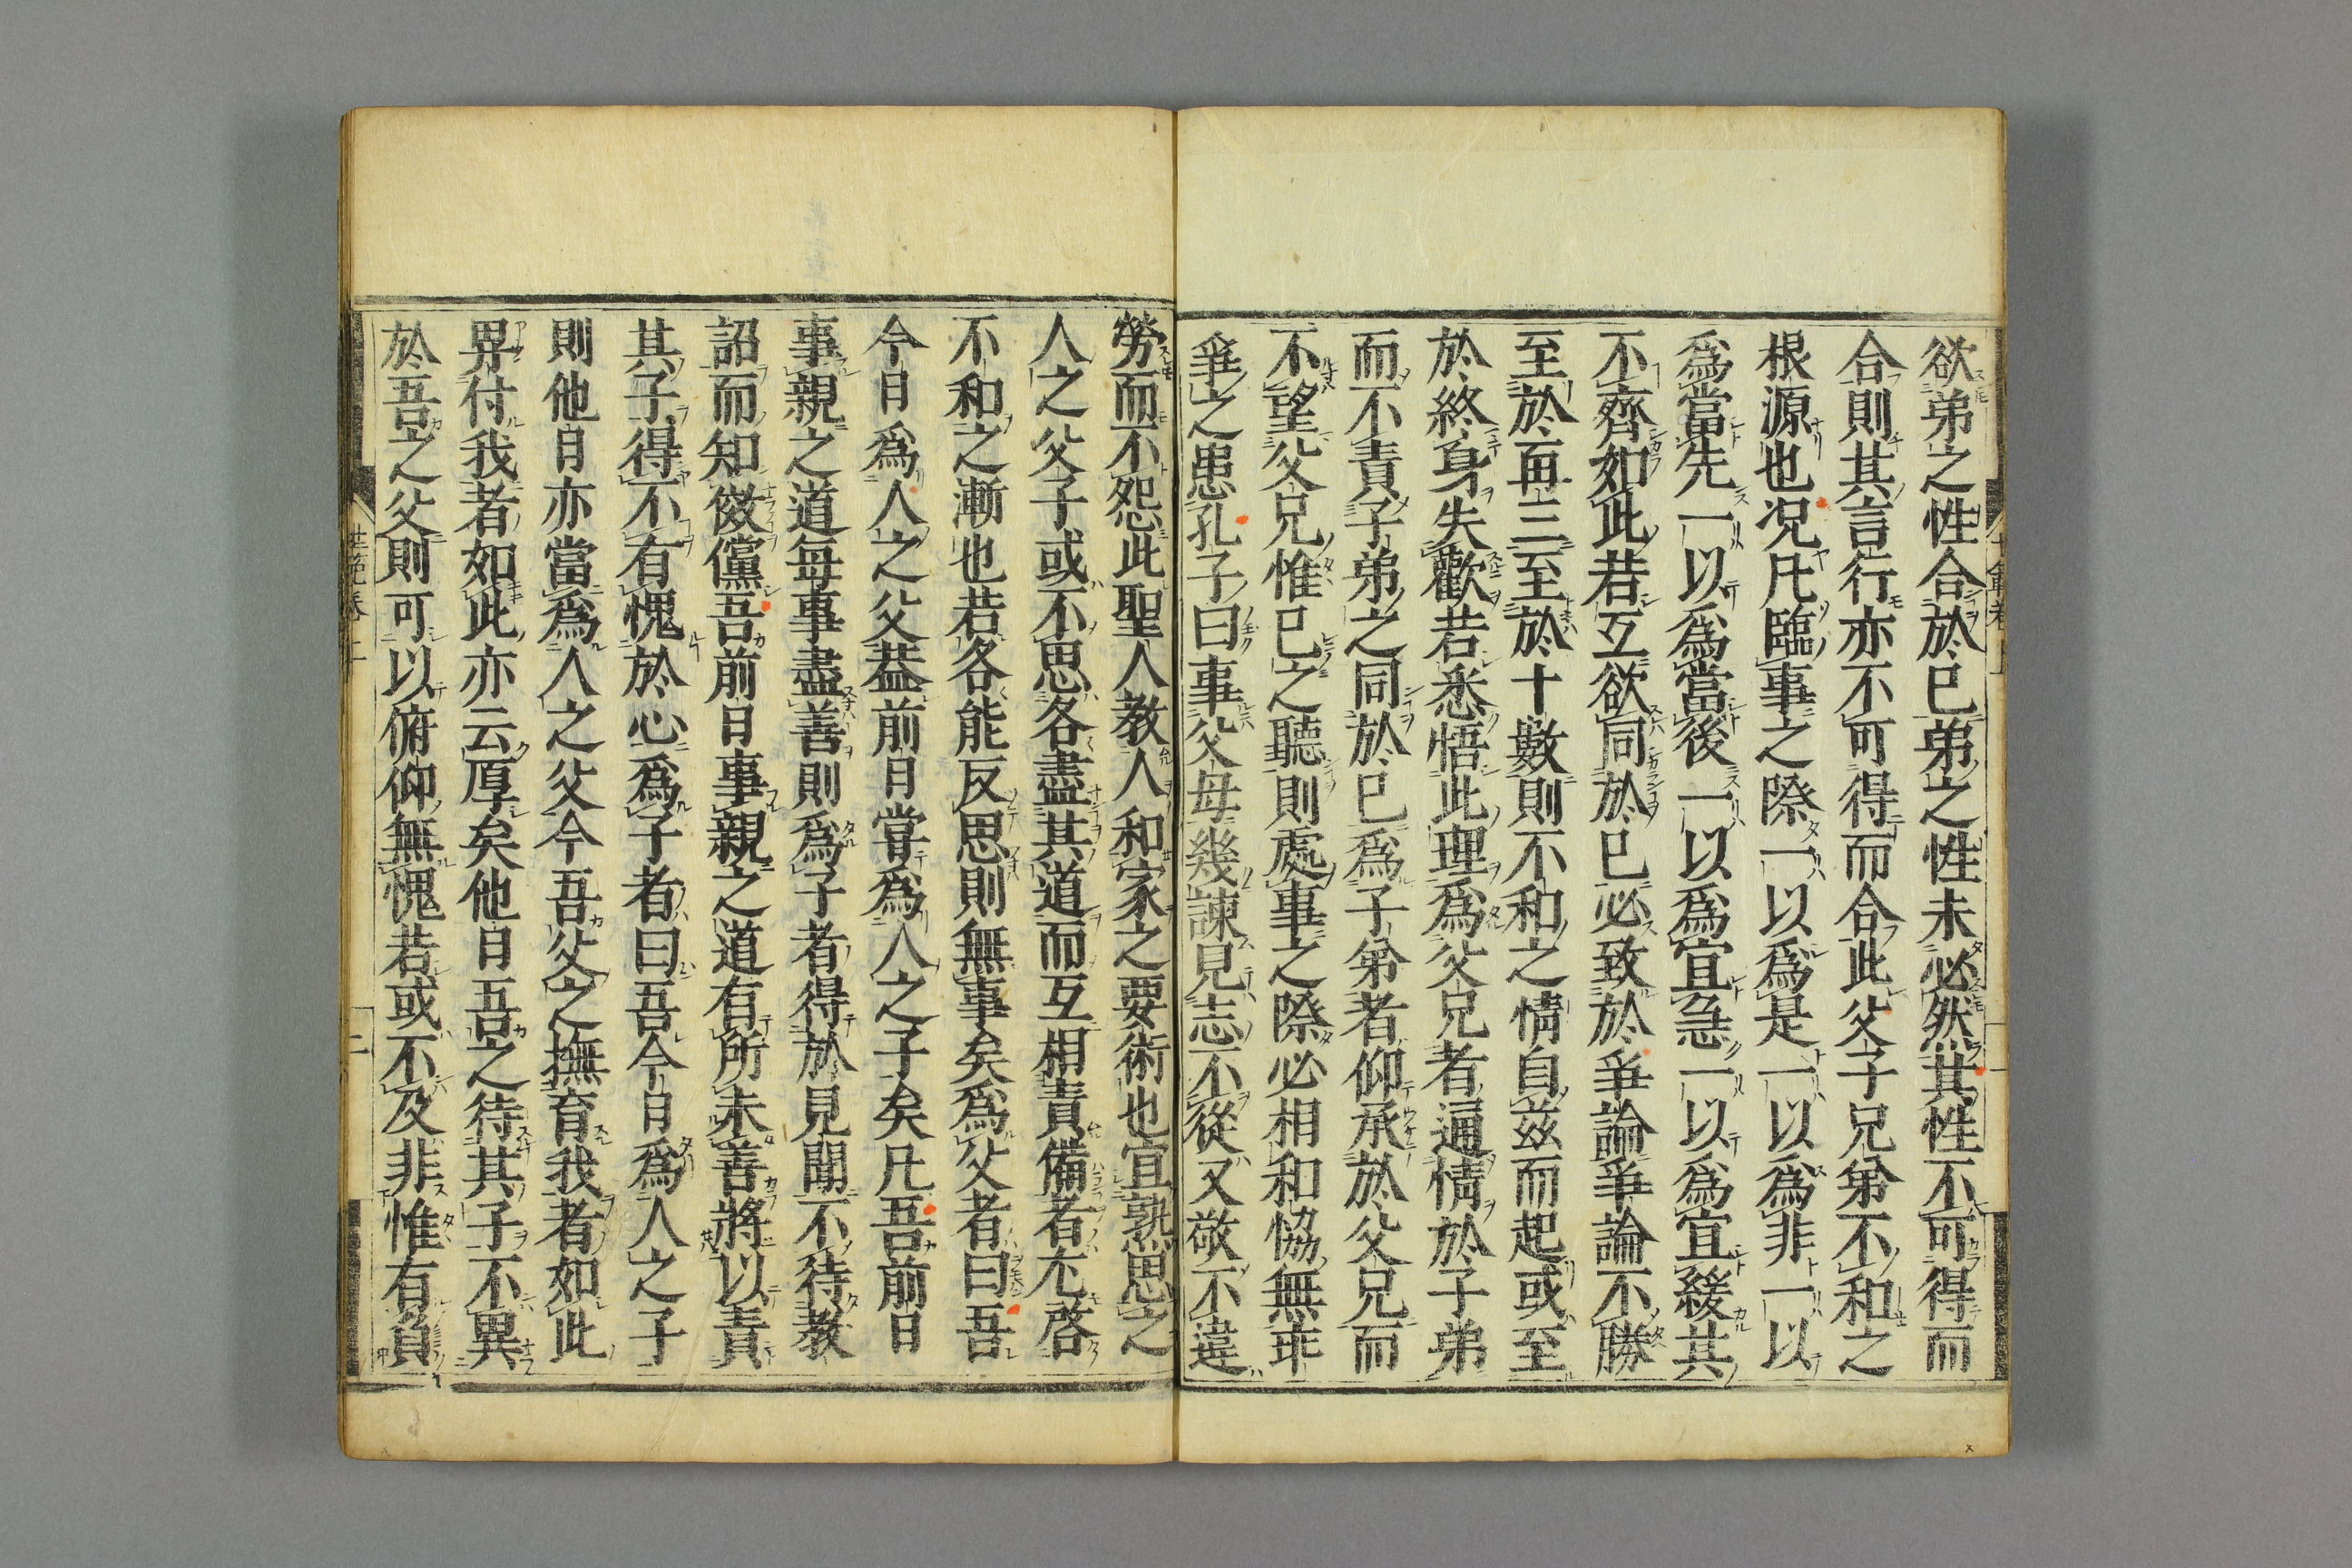 欲弟之性合於已弟之性未必然其性不可得而
合則其言行亦不可得而合此父子兄弟不和之
根源也况凡臨事之際一以爲是一以爲非一以
爲當先一以爲當後一以爲宜急一以爲宜緩其
不齊如此若互欲同於已必致於爭論爭論不勝
至於再三至於十數則不和之情自兹而起或至
於終身失歡若悉悟此理爲父兄者通情於子弟
而不責子弟之同於已爲子弟者仰承於父兄而
不望父兄惟已之聽則處事之際必相和恊無乖
爭之患孔子曰事父母幾諫見志不從又敬不違
勞而不怨此聖人教人和家之要術也宜熟思之
人之父子或不思各盡其道而互相責備者尤啓
不和之漸也若各能反思則無事矣爲父者曰吾
今日爲人之父葢前日嘗爲人之子矣凡吾前日
事親之道每事盡善則爲子者得於見聞不待教
詔而知傚儻吾前日事親之道有所未善將以責
其子得不有愧於心爲子者曰吾今日爲人之子
則他日亦當爲人之父今吾父之撫育我者如此
畀付我者如此亦云厚矣他日吾之待其子不異
於吾之父則可以俯仰無愧若或不及非惟有負
世範卷上
二